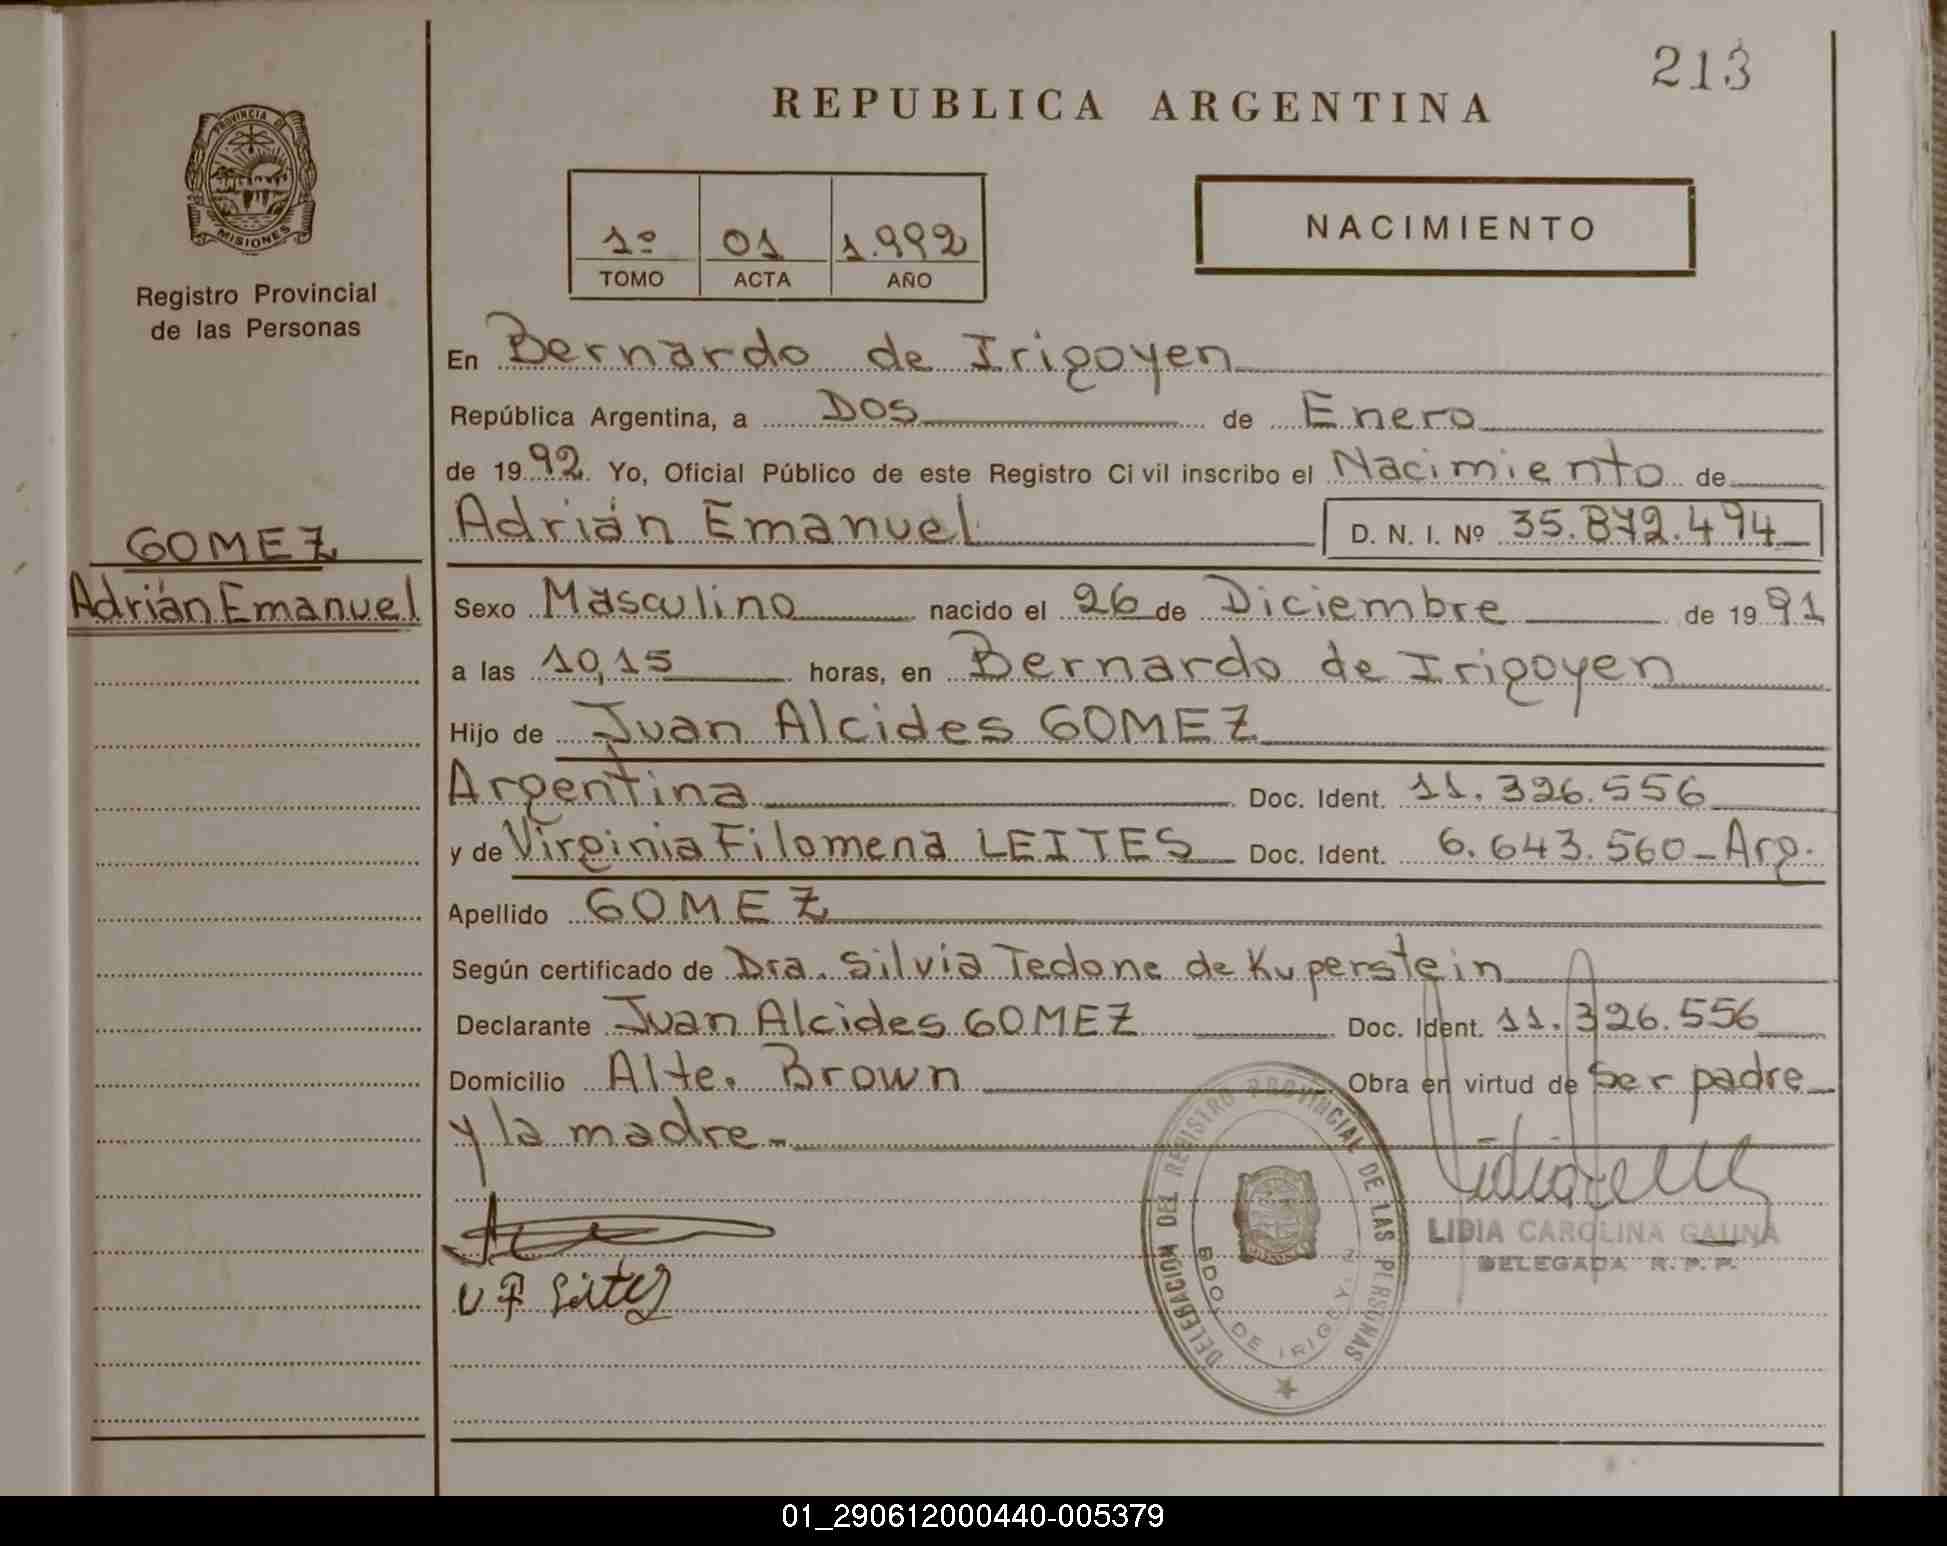 213
REPUBLICA ARGENTINA
PROVINCIA DE
MISIONES
Registro Provincial
de las Personas
1º 01 1.992
TOMO ACTA AÑO
NACIMIENTO
En Bernardo de Irigoyen
República Argentina, a Dos de Enero
de 1992. Yo, Oficial Público de este Registro Civil inscribo el Nacimiento de
Adrián Emanuel D. N. I. Nº 35.872.474
GOMEZ
Adrián Emanuel
Sexo Masculino nacido el 26 de Diciembre de 1991
a las 10,15 horas, en Bernardo de Irigoyen
Hijo de Juan Alcides GOMEZ
Argentina Doc. Ident. 11.326.556
y de Virginia Filomena LEITES Doc. Ident. 6.643.560-Arg.
Apellido GOMEZ
Según certificado de Dra. Silvia Tedone de Kuperstein
Declarante Juan Alcides GOMEZ Doc. Ident. 11.326.556
Domicilio Alte. Brown Obra en virtud de Ser padre
y la madre.-
DELEGACION DEL REGISTRO PROVINCIAL DE LAS PERSONAS
BDO. DE IRIGOY
LIDIA CAROLINA GAUNA
DELEGADA R. P. P.
01_290612000440-005379